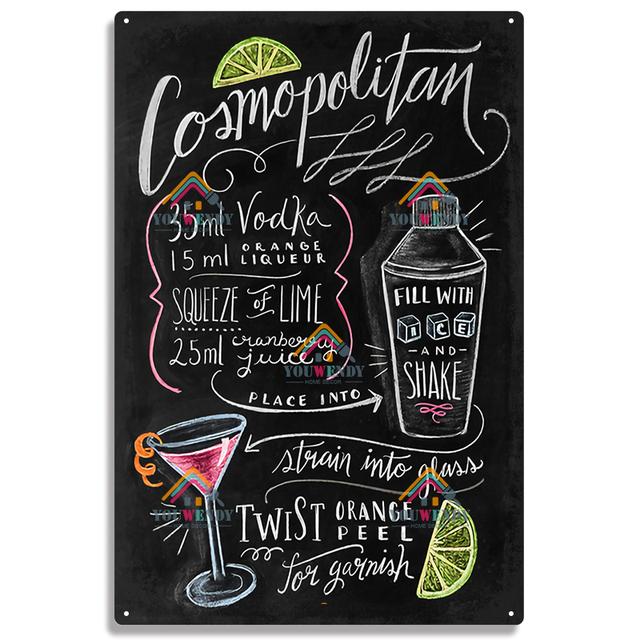 Cosmopolitan
35ml Vodka
15ml ORANGE LIQUEUR
SQUEEZE OF LIME
25ml cranberry juice
PLACE INTO
FILL WITH
ICE
-AND-
SHAKE
strain into glass
TWIST ORANGE PEEL
for garnish
YOUWENDY
YOUWENDY
YOUWENDY
HOME DECOR
YOUWENDY
HOME DECOR
YOUWENDY
HOME DECOR